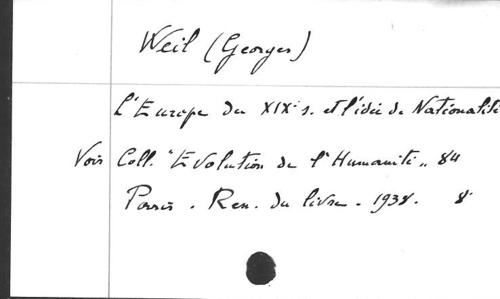 Weil (Georges)
L'Europe du XIXe s. et l'idée de Nationalité
Voir Coll. "Evolution de l'Humanité" 84
Paris. Ren. du livre. 1938. 8°